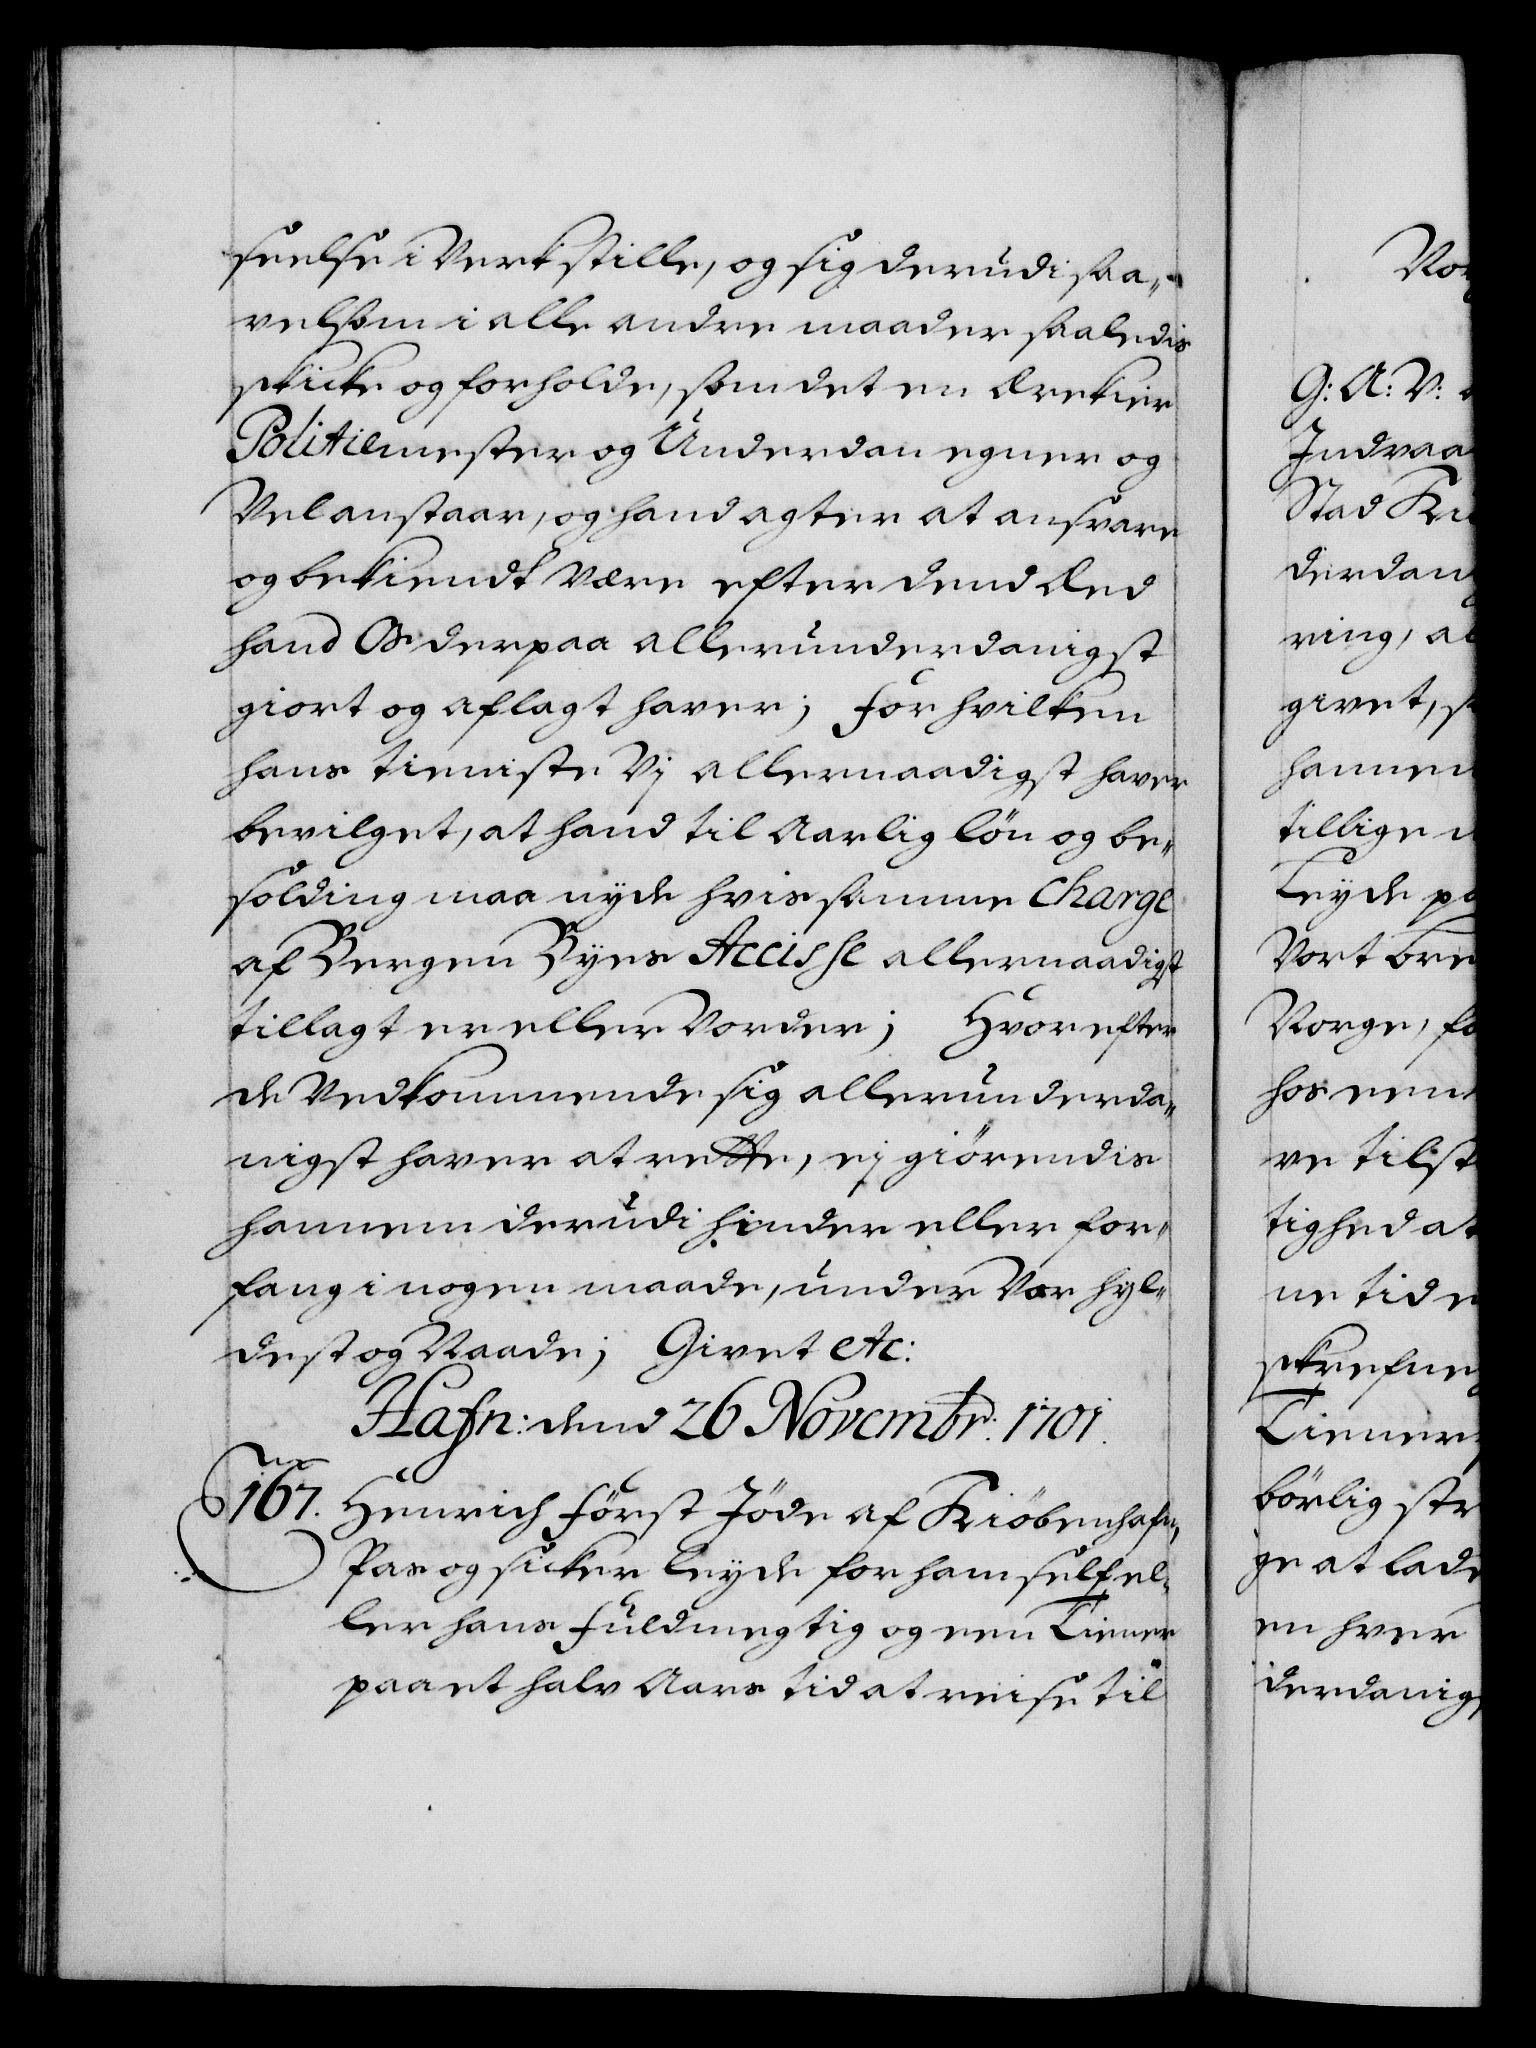 seelse i Verkstille, og sig derudi saa„
velsom i alle andre maader saaledis
skicke og forholde, som det en ærekier
Politiemester og Underdan egner og
Vel anstaar, og hand agter at ansvare
og bekiendt være efter dend Eed
hand Os derpaa allerunderdanigst
giort og aflagt haver; For hvilken
hans tieniste Vj allernaadigst haver
bevilget, at hand til Aarlig løn og be„
solding maa nyde hvis samme Charge
af Bergen Byes Accisse allernaadigst
tillagt er eller Vorder; Hvorefter
de Vedkommende sig allerunderda„
nigst haver at rette, ej giörendis
hannem derudi hinder eller for„
fang i nogen maade, under Vor hyl„
dest og Naade; Givet etc:
Hafn: dend 26 Novembr: 1701.
167. Henrich Först Jöde af Kiöbenhafn,
Pas og sicker leyde for ham self el„
ler hans fuldmegtig og een Tiener
paa et halv Aars tid at reise til
Nor
G: A: V:
Indvaa
Stad Kiö
derdan
ring, al
givet, s
hannem
tillige
Leyde pa
Vort bre
Norge, fo
hos een
ve tilst
tighed at
ne tide
skrefne
Tiener
börlig str
ge at lade
en hver
derdanigs